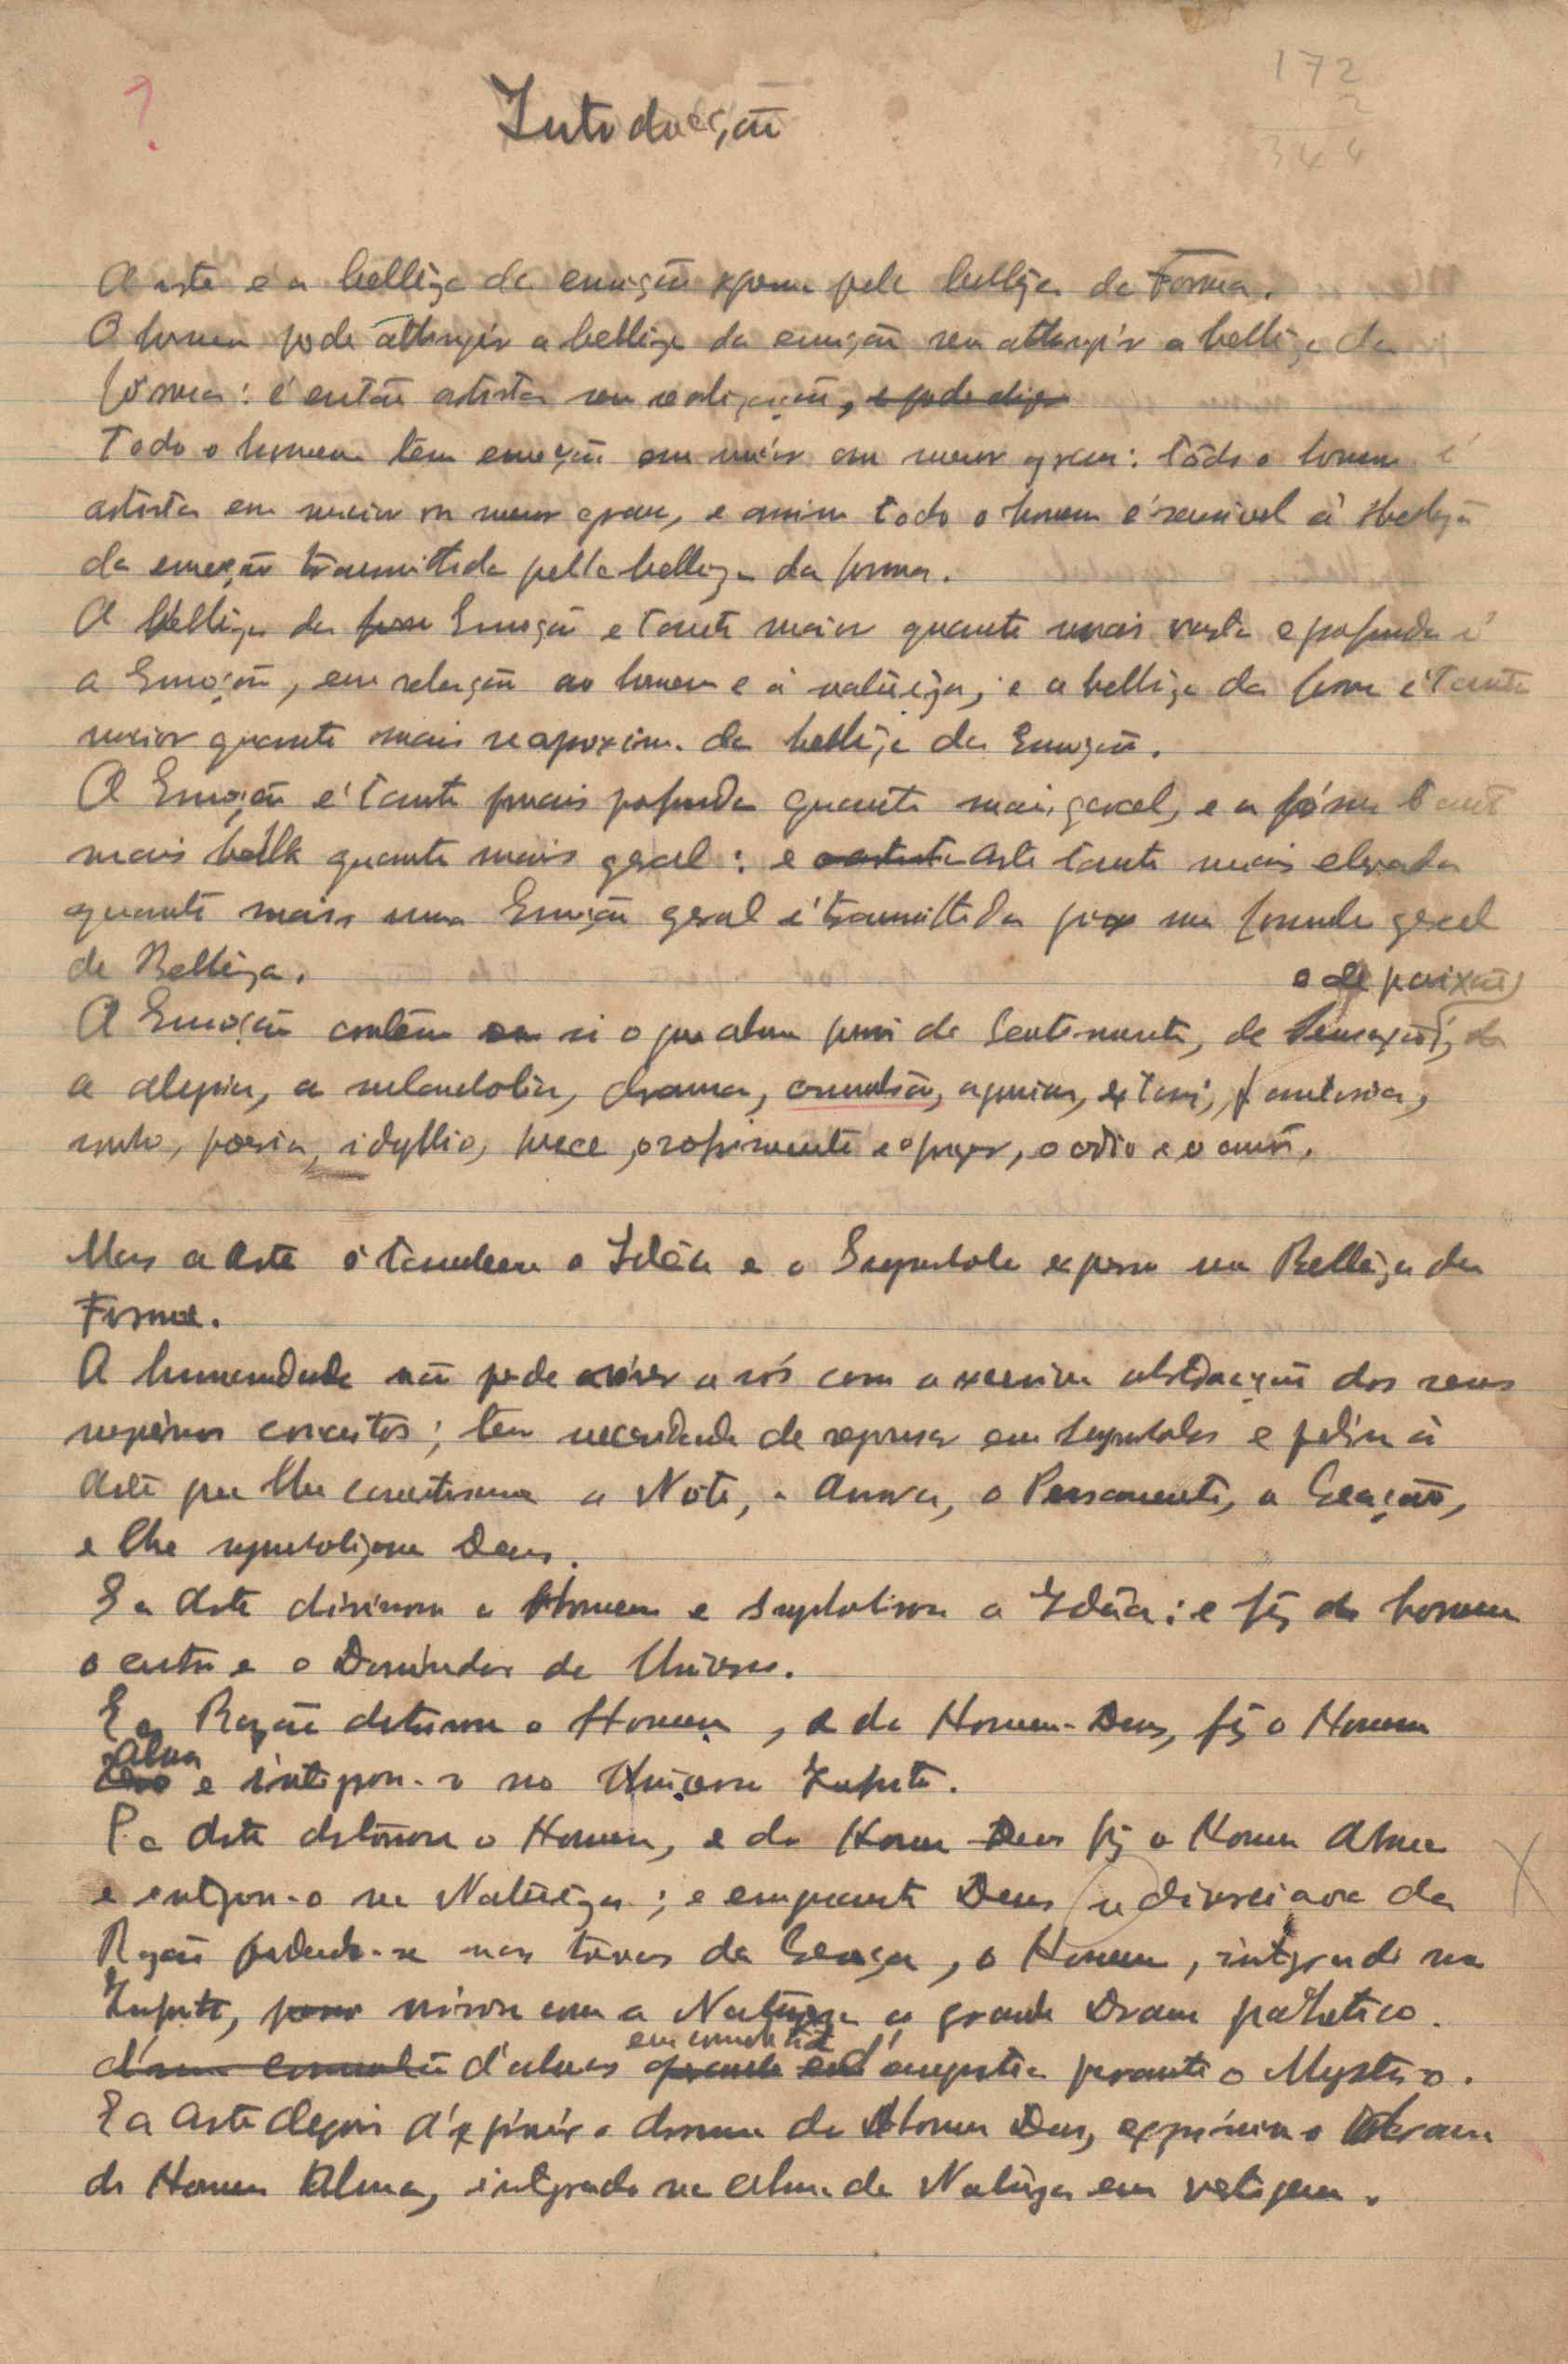 ?
172
2
344
Introducção
A arte e a belleza da emoção expressa pela belleza da Forma.
O homem pode attingir a belleza da emoção sem attingir a belleza da
fórma: é então artista sem realização, e pode dizer
Todo o homem tem emoção em maior ou menor grau: todo o homem é
artista em maior ou menor grau, e assim todo o homem é sensivel á
da emoção transmittida pella belleza da forma.
A belleza da Emoção e tanto maior quanto mais vasta e profunda é
a Emoção, em relação ao homem e á natureza, e a belleza da forma é tanto
maior quanto mais se aproxima da belleza da Emoção.
A Emoção é tanto mais profunda quanto mais geral, e a fórma tanto
mais bella quanto mais geral: e a arte tanto mais elevada
quanto mais uma Emoção geral é transmittida por uma formula geral
de Belleza.
e de paixão
A Emoção contém em si o que a alma possui de Sentimento, de Sensação, da
a alegria, a melancholia, drama, convulsão, agonia, extasi, fantasia,
sonho, poesia, idyllio, prece, o soffrimento e o prazer, o odio e o amor.
Mas a Arte é tambem a Idêa e o Symbolo expresso na Belleza da
Forma.
A humanidade não pode viver a sós com a excessiva abstracção dos seus
supremos conceitos; tem necessidade de repousar em Symbolos e pediu á
Arte que lhe concretisasse a Noite, a Aurora, o Pensamento, a Creação,
e lhe symbolizasse Deus.
E a Arte divinisou o Homem e Symbolisou a Idêa: e fez do homem
o centro e o Dominador do Universo.
E a Razão destronou o Homem, e do Homem-Deus, fez o Homem
Alma
e integrou-o no Universo Infinito.
E a Arte destronou o Homem, e do Homem Deus fez o Homem Alma
e integrou-o na Natureza; e emquanto Deus se divorciava da
Razão perdendo-se nas trevas da Crença, o Homem, integrado no
Infinito, viveu com a Natureza o grande Drama pathetico.
em convulsão
d'uma convulsão d'almas d'angustia perante o Mysterio.
E a Arte depois d'exprimir o drama do Homem Deus, exprimiu o Drama
do Homem Alma, integrado na alma da Natureza em vertigem.